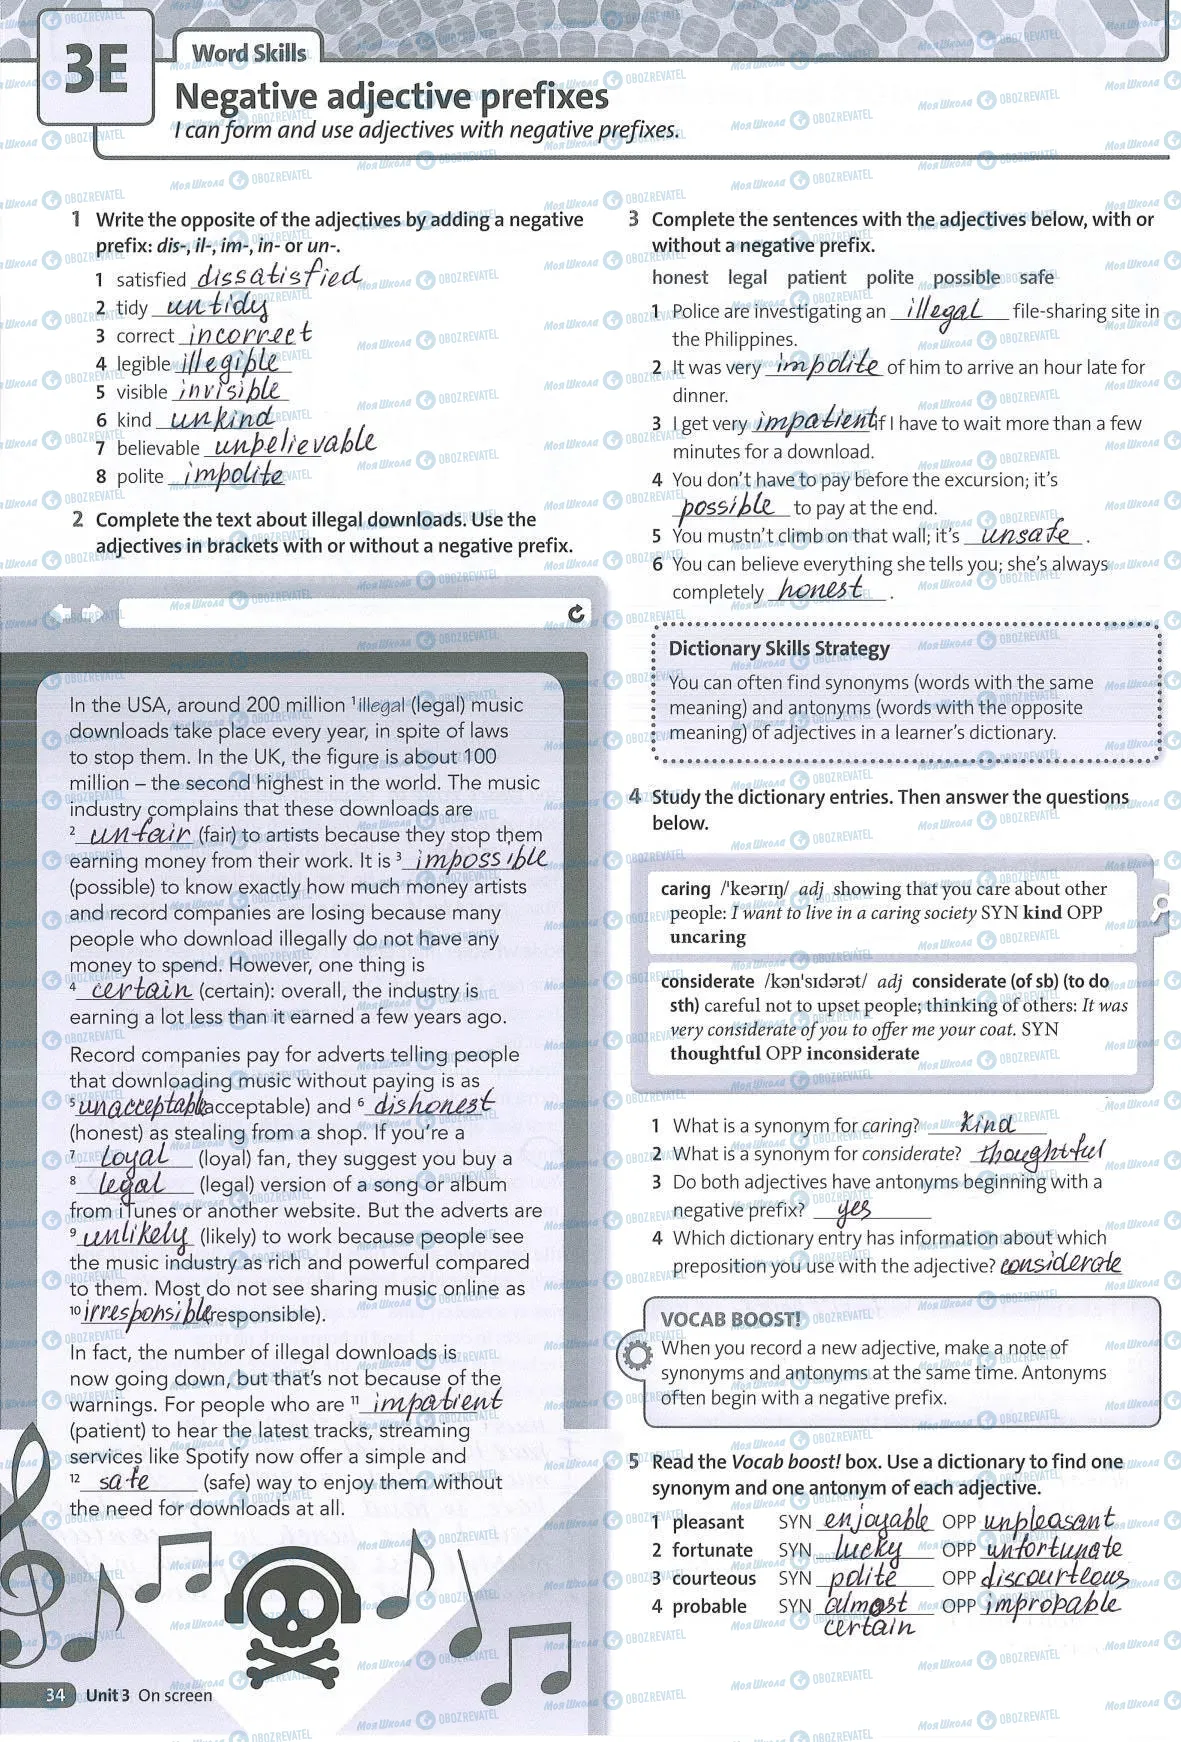 3E
Word Skills
Negative adjective prefixes
I can form and use adjectives with negative prefixes.
1 Write the opposite of the adjectives by adding a negative
prefix: dis-, il-, im-, in- or un-.
1 satisfied dissatisfied
2 tidy untidy
3 correct incorrect
4 legible illegible
5 visible invisible
6 kind unkind
7 believable unbelievable
8 polite impolite
2 Complete the text about illegal downloads. Use the
adjectives in brackets with or without a negative prefix.
In the USA, around 200 million 1 illegal (legal) music
downloads take place every year, in spite of laws
to stop them. In the UK, the figure is about 100
million – the second highest in the world. The music
industry complains that these downloads are
2 unfair (fair) to artists because they stop them
earning money from their work. It is 3 impossible
(possible) to know exactly how much money artists
and record companies are losing because many
people who download illegally do not have any
money to spend. However, one thing is
4 certain (certain): overall, the industry is
earning a lot less than it earned a few years ago.
Record companies pay for adverts telling people
that downloading music without paying is as
5 unacceptable (acceptable) and 6 dishonest
(honest) as stealing from a shop. If you're a
7 loyal (loyal) fan, they suggest you buy a
8 legal (legal) version of a song or album
from iTunes or another website. But the adverts are
9 unlikely (likely) to work because people see
the music industry as rich and powerful compared
to them. Most do not see sharing music online as
10 irresponsible (responsible).
In fact, the number of illegal downloads is
now going down, but that's not because of the
warnings. For people who are 11 impatient
(patient) to hear the latest tracks, streaming
services like Spotify now offer a simple and
12 safe (safe) way to enjoy them without
the need for downloads at all.
34 Unit 3 On screen
3 Complete the sentences with the adjectives below, with or
without a negative prefix.
honest legal patient polite possible safe
1 Police are investigating an illegal file-sharing site in
the Philippines.
2 It was very impolite of him to arrive an hour late for
dinner.
3 I get very impatient if I have to wait more than a few
minutes for a download.
4 You don't have to pay before the excursion; it's
possible to pay at the end.
5 You mustn't climb on that wall; it's unsafe .
6 You can believe everything she tells you; she's always
completely honest .
Dictionary Skills Strategy
You can often find synonyms (words with the same
meaning) and antonyms (words with the opposite
meaning) of adjectives in a learner's dictionary.
4 Study the dictionary entries. Then answer the questions
below.
caring /ˈkeərɪŋ/ adj showing that you care about other
people: I want to live in a caring society SYN kind OPP
uncaring
considerate /kənˈsɪdərət/ adj considerate (of sb) (to do
sth) careful not to upset people; thinking of others: It was
very considerate of you to offer me your coat. SYN
thoughtful OPP inconsiderate
1 What is a synonym for caring? kind
2 What is a synonym for considerate? thoughtful
3 Do both adjectives have antonyms beginning with a
negative prefix? yes
4 Which dictionary entry has information about which
preposition you use with the adjective? considerate
VOCAB BOOST!
When you record a new adjective, make a note of
synonyms and antonyms at the same time. Antonyms
often begin with a negative prefix.
5 Read the Vocab boost! box. Use a dictionary to find one
synonym and one antonym of each adjective.
1 pleasant SYN enjoyable OPP unpleasant
2 fortunate SYN lucky OPP unfortunate
3 courteous SYN polite OPP discourteous
4 probable SYN almost OPP improbable
certain
Моя Школа OBOZREVATEL